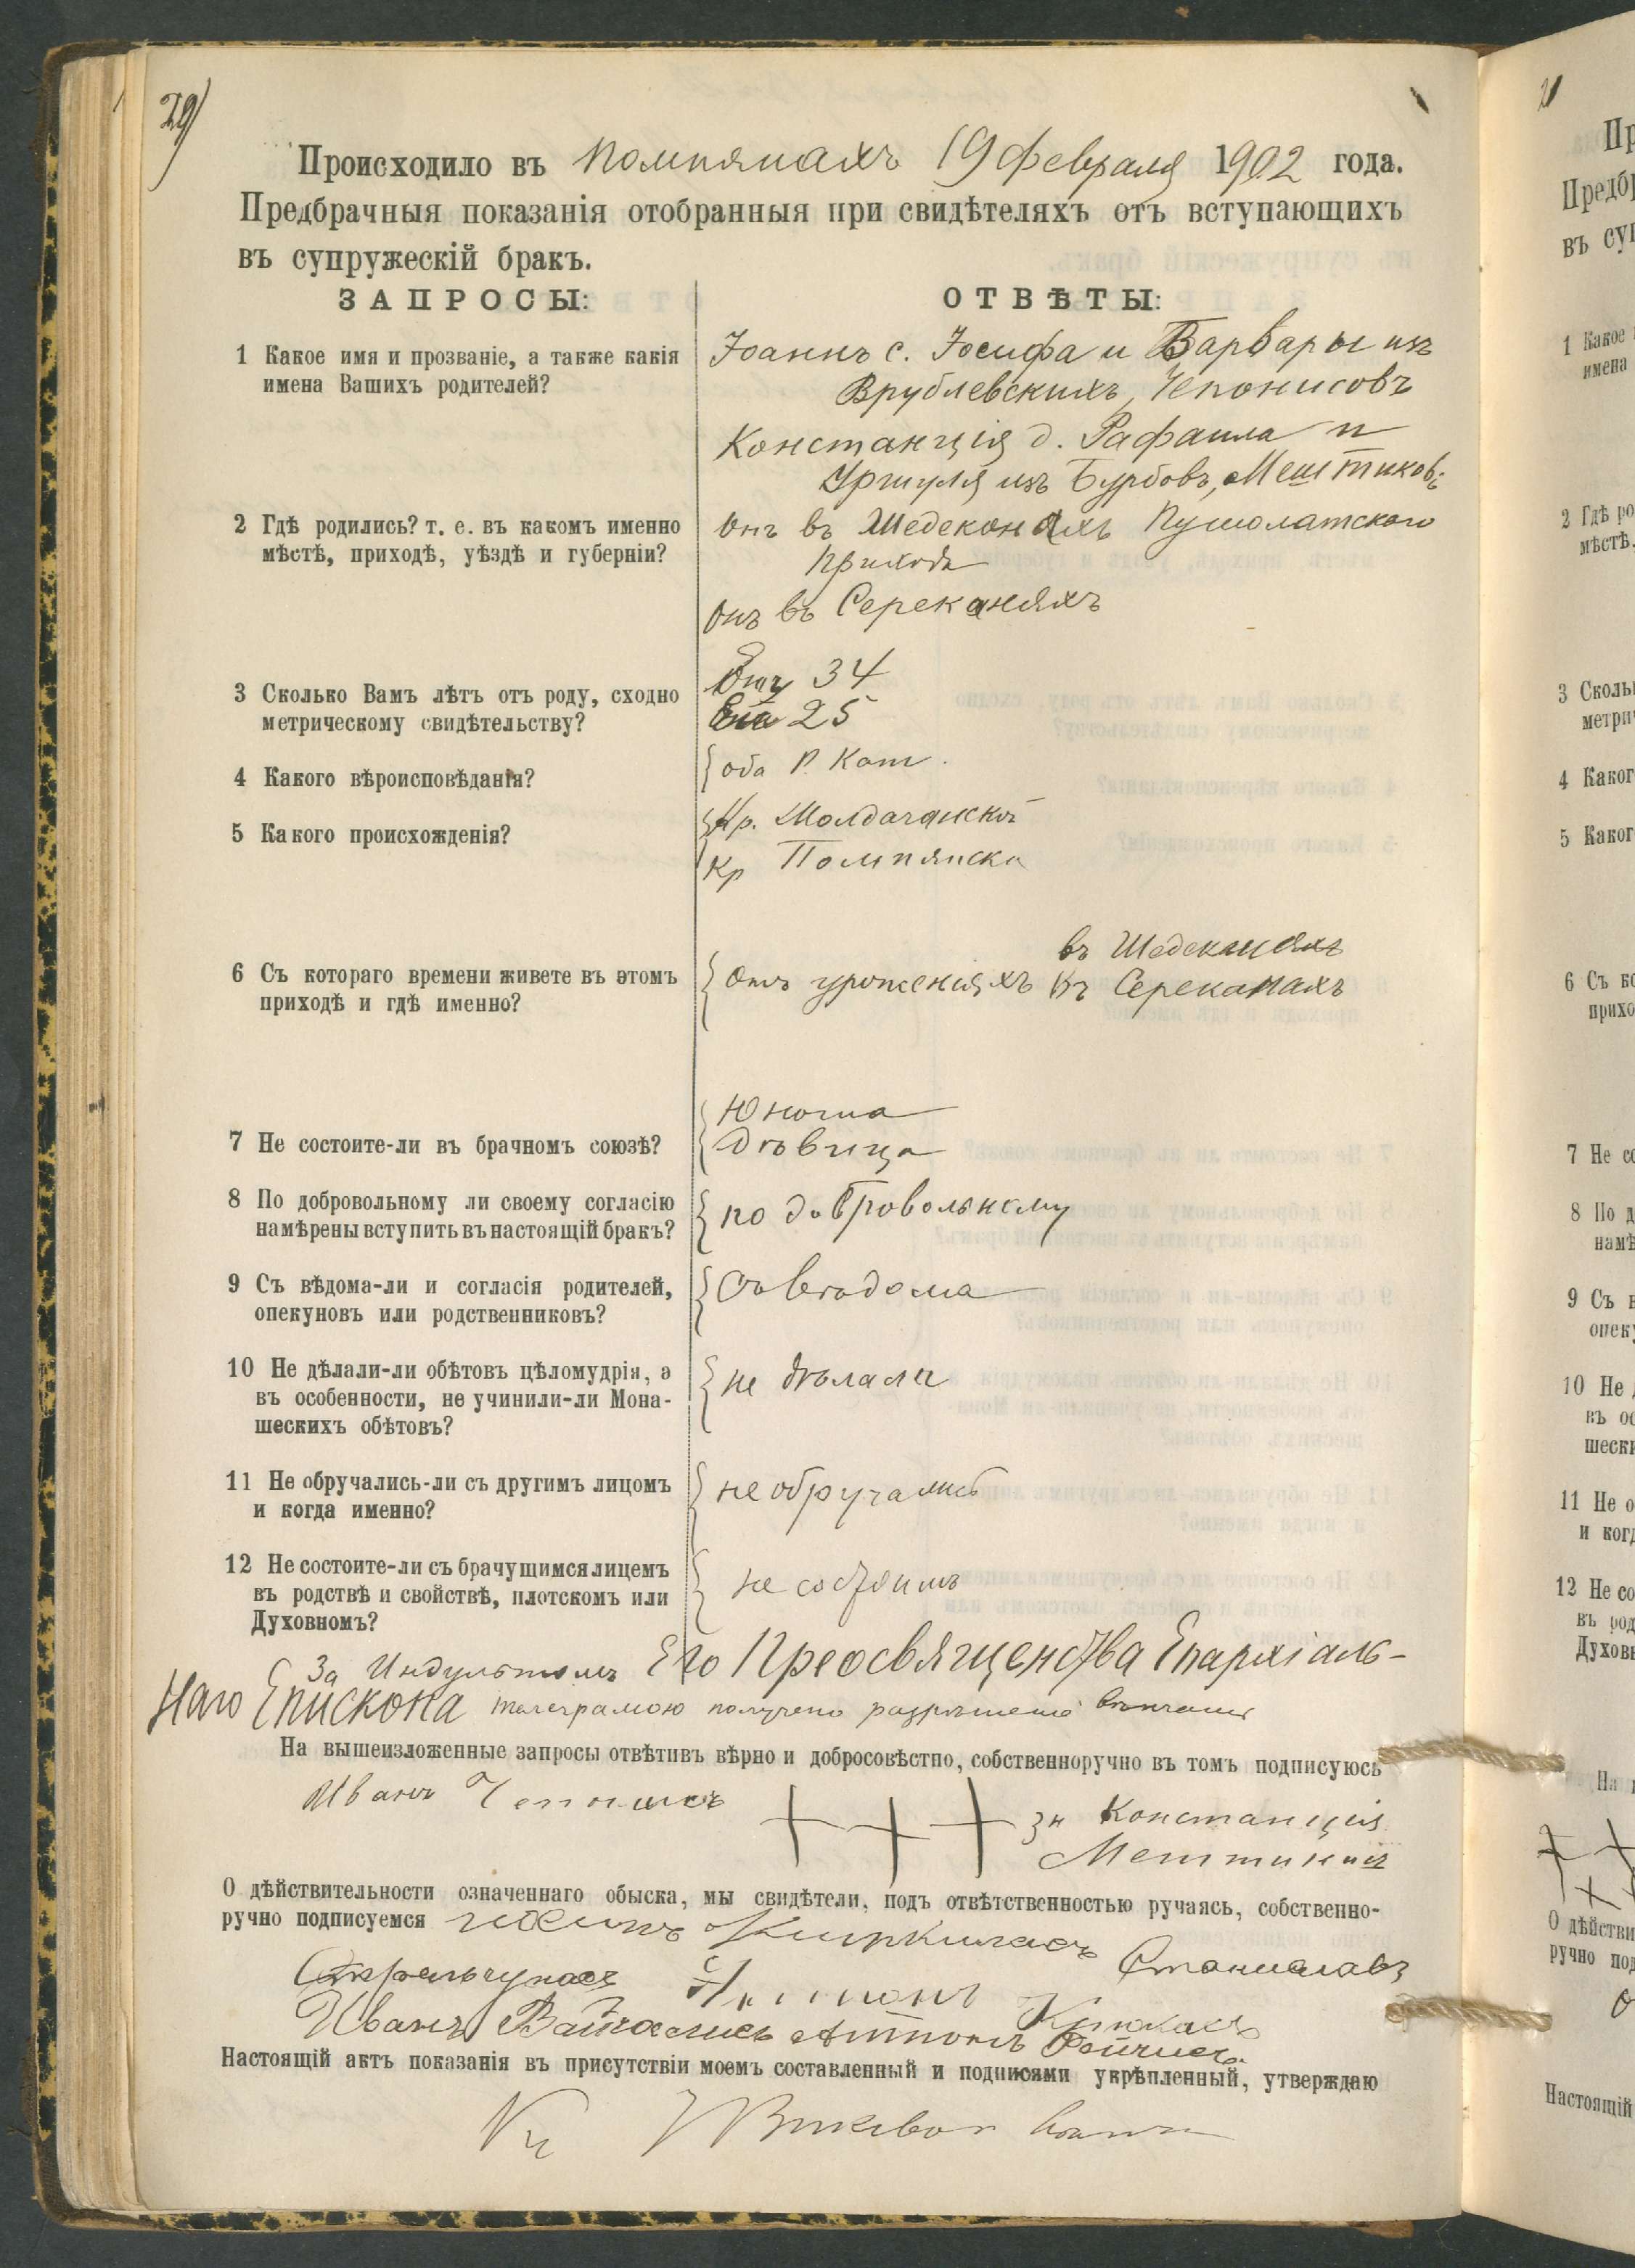 29)
Происходило въ Помпянахъ 19 Февраля 1902 года.
Предбрачныя показанія отобранныя при свидѣтеляхъ отъ вступающихъ
въ супружескій бракъ.
ЗАПРОСЫ:
ОТВѢТЫ:
1 Какое имя и прозваніе, а также какія
имена Вашихъ родителей?
Іоаннъ с. Іосифа и Варвары изъ
Врублевскихъ, Чепонисовъ
Констанція д. Рафаила и
Уршуля изъ Бурбовъ, Мештиковъ
2 Гдѣ родились? т. е. въ какомъ именно
мѣстѣ, приходѣ, уѣздѣ и губерніи?
Онъ въ Шедеконяхъ Пушолатского
прихода
Онъ въ Середканяхъ
3 Сколько Вамъ лѣтъ отъ роду, сходно
метрическому свидѣтельству?
Ему 34
Ей 25
4 Какого вѣроисповѣданія?
оба Р. Кат.
5 Какого происхожденія?
Кр. Молдачанской
Кр Помпянска
6 Съ котораго времени живете въ этомъ
приходѣ и гдѣ именно?
въ Шедеканяхъ
Отъ урожденія въ Сереканахъ
7 Не состоите-ли въ брачномъ союзѣ?
Юноша
Дѣвица
8 По добровольному ли своему согласію
намѣрены вступить въ настоящій бракъ?
по добровольному
9 Съ вѣдома-ли и согласія родителей,
опекуновъ или родственниковъ?
Съ вѣдома
10 Не дѣлали-ли обѣтовъ цѣломудрія, а
въ особенности, не учинили-ли Мона-
шескихъ обѣтовъ?
не дѣлали
11 Не обручались-ли съ другимъ лицомъ
и когда именно?
не обручались
12 Не состоите-ли съ брачущимся лицемъ
въ родствѣ и свойствѣ, плотскомъ или
Духовномъ?
не состоимъ
За Индультомъ Его Преосвященства Епархіаль-
наго Епископа телеграмою получено разрѣшеніе
На вышеизложенные запросы отвѣтивъ вѣрно и добросовѣстно, собственноручно въ томъ подписуюсь
Иванъ Чепонисъ
+ + + за Констанція
Мештикія
О дѣйствительности означеннаго обыска, мы свидѣтели, подъ отвѣтственностью ручаясь, собственно-
ручно подписуемся Киркиласъ Станиславъ
Стрельчунасъ Антонъ
Иванъ Антонъ
Настоящій актъ показанія въ присутствіи моемъ составленный и подписями укрѣпленный, утверждаю